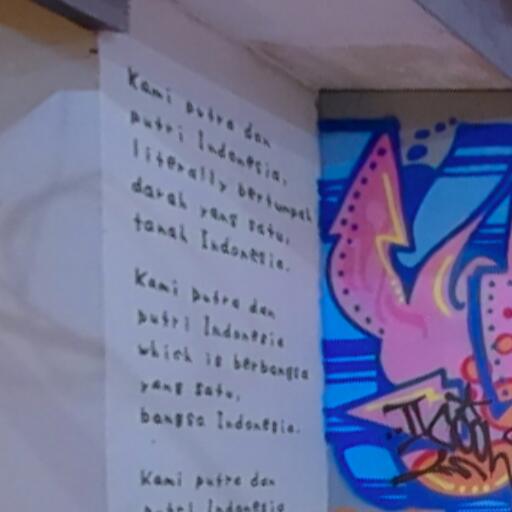 Kami putra dan
putri Indonesia,
literally bertumpah
darah yang satu,
tanah Indonesia.
Kami putra dan
putri Indonesia
which is berbangsa
yang satu,
bangsa Indonesia.
Kami putra dan
putri Indonesia